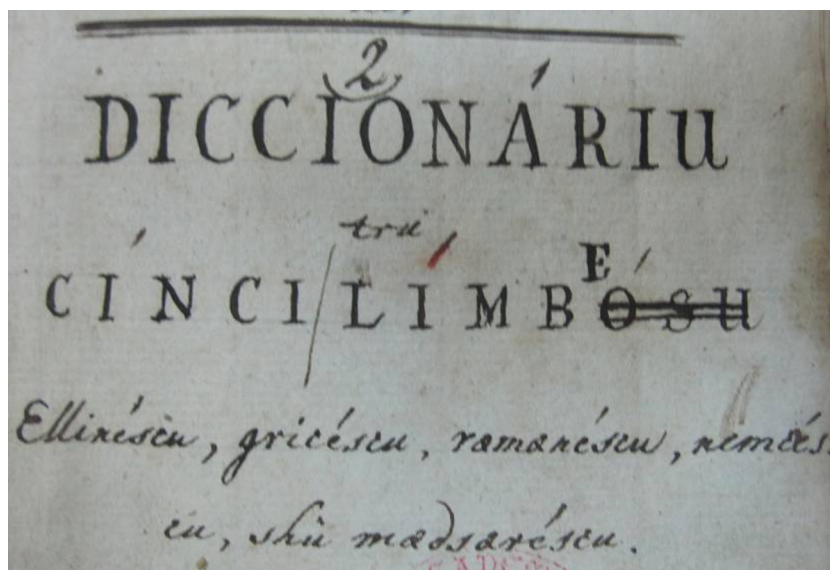 2
DICCIONÁRIU
trií
CÍNCI/LÍMBÓSU
E
Ellinéscu, gricéscu, ramanéscu, nemcés
cu, shii mædsæréscu.